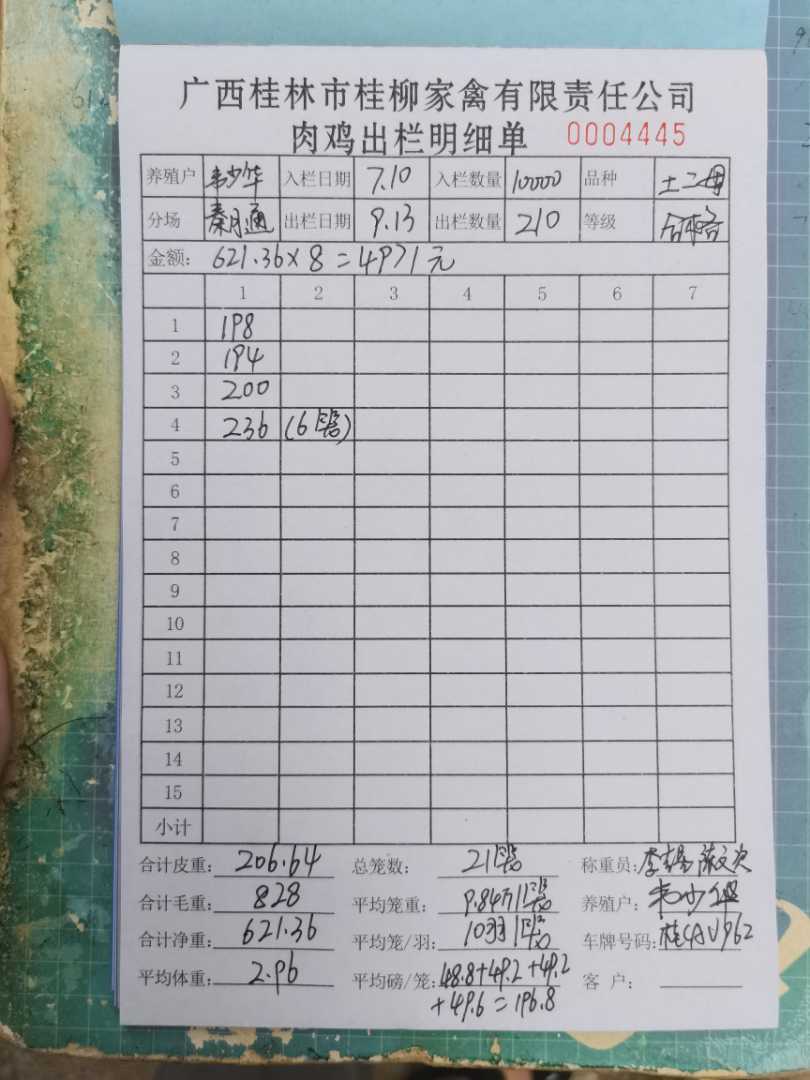 广西桂林市桂柳家禽有限责任公司
肉鸡出栏明细单 0004445
养殖户 韦少华 入栏日期 7.10 入栏数量 10000 品种 土二母
分场 秦月通 出栏日期 9.13 出栏数量 210 等级 合格
金额: 621.36×8=4971元
1 2 3 4 5 6 7
1 198
2 194
3 200
4 236 (6笼)
5
6
7
8
9
10
11
12
13
14
15
小计
合计皮重: 206.64 总笼数: 21笼 称重员:
合计毛重: 828 平均笼重: 9.84斤/笼 养殖户: 韦少华
合计净重: 621.36 平均笼/羽: 10羽/笼 车牌号码: 桂CAV962
平均体重: 2.96 平均磅/笼: 48.8+49.2+49.2
+49.6=196.8 客 户: